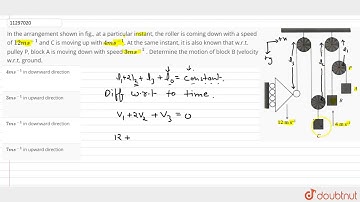 11297020
In the arrangement shown in fig., at a particular instant, the roller is coming down with a speed
of 12ms⁻¹ and C is moving up with 4ms⁻¹. At the same instant, it is also known that w.r.t.
pulley P, block A is moving down with speed 3ms⁻¹. Determine the motion of block B (velocity)
w.r.t. ground.
4ms⁻¹ in downward direction
3ms⁻¹ in upward direction
7ms⁻¹ in downward direction
7ms⁻¹ in upward direction
l₁+2l₂+l₃+l₀=constant.
Diff w.r.t to time.
V₁+2V₂+V₃=0
12+
12 ms⁻¹
4 ms⁻¹
A
B
C
doubtnut